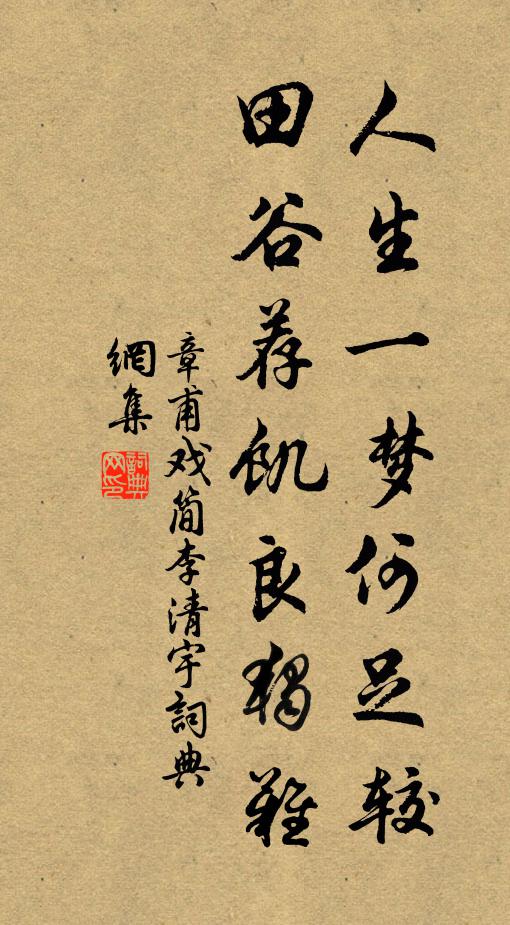 人生一梦何足较
田谷荐饥良独难
章甫戏简李清宇詞典
網集
詞典网印